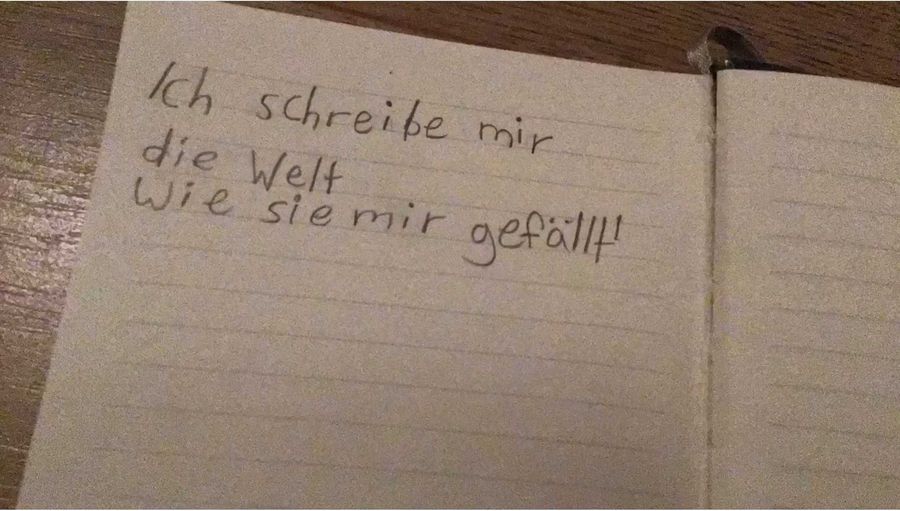 Ich schreibe mir
die Welt
Wie sie mir gefällt!